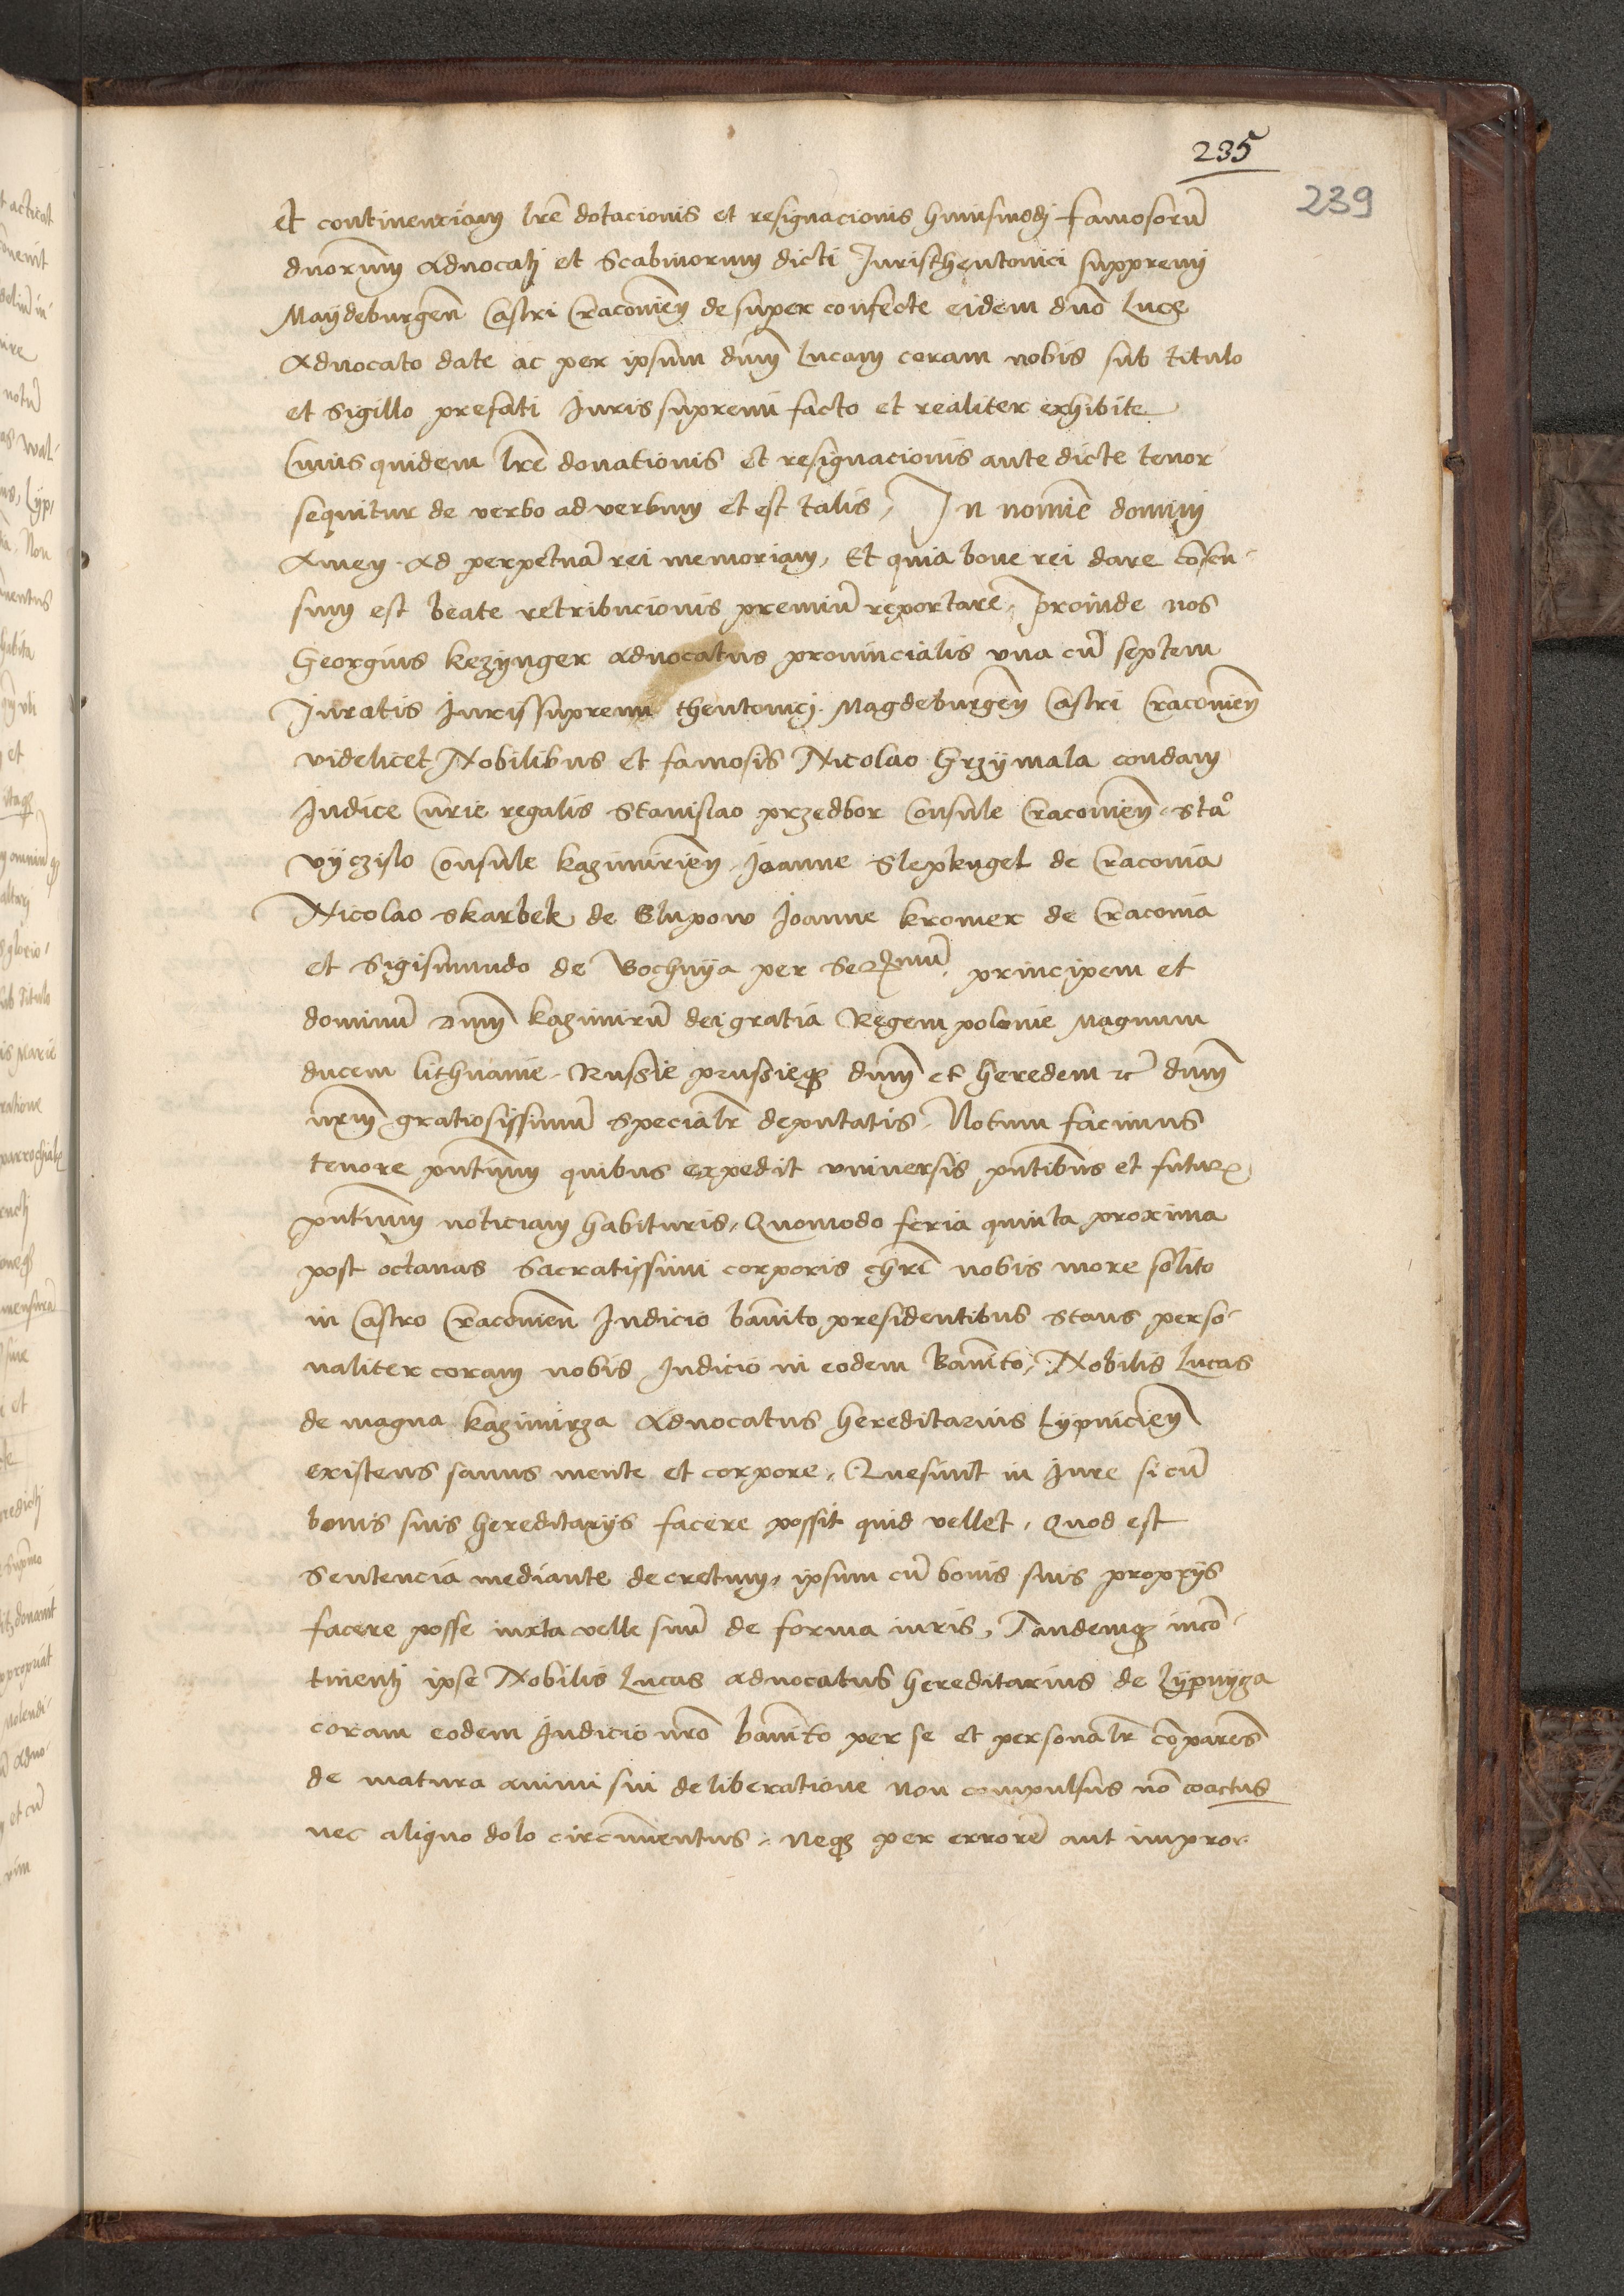 235
239
et continenciam lrẽ dotacionis et resignacionis huiusmodj famosorũ
dnorum Aduocatj et Scabinorum dicti Juristheutonici suppremj
Maydeburgeñ Castri Cracouieñ desuper confecte eidem dno Luce
Aduocato date ac per ipsum dnm̃ Lucam coram nobis sub titulo
et Sigillo prefati Iuris supremi facto et realiter exhibite
Cuius quidem lrẽ donationis et resignacionis ante dicte tenor
sequitur de verbo ad verbum et est talis, In nomiē dominj
Amen. Ad perpetuā rei memoriam, Et quia bone rei dare cōsen-
sum est beate retribucionis premiū reportare, Proinde nos
Georgius kezynger aduocatus prouincialis vna cū septem
Iuratis Iuris supremi theutonicj Magdeburgeñ Castri Cracouieñ
videlicet Nobilibus et famosis Nicolao Grzymala condam
Iudice Curie regalis Stanislao przedbor Consule Cracouieñ. Stao
vyczislo Consule kazimirieñ. Joanne Slepkugel de Cracouia
Nicolao Skarbek de Glupow Joanne kromer de Cracouia
et Sigismundo de Bochnya per Serᵐᵘ̄, principem et
dominū dnm̃ kazimirū dei gratia Regem polonie Magnum
ducem lithuanie. Russie prussieqȝ dnm̃ et heredem etc̄ dnm̃
nrm̃ gratiosissimū specialr̃ deputatis, Notum facimus
tenore pñtium quibus expedit vniuersis pñtibus et futuris
pñtium noticiam habituris, Quomodo feria quinta proxima
post octauas Sacratissimi corporis chrĩ nobis more solito
in Castro Cracouieñ Iudicio bañito presidentibus Stans perso-
naliter coram nobis Iudicio in eodem Bañito, Nobilis Lucas
de magna kazimirza Aduocatus hereditarius Lypniciensñ
existens sanus mente et corpore, Quesiuit in Iure si cū
bonis suis hereditarijs facere possit quid vellet, Quod est
Sentencia mediante decretum, ipsum cū bonis suis proprijs
facere posse iuxta velle suū de forma iuris, Tandemqȝ incō-
tinentj ipse Nobilis Lucas aduocatus hereditarius de Lypnyza
coram eodem Iudicio nrõ bañito per se et personalr̃ cōparens
de matura animi sui deliberatione non compulsus nō coactus
nec aliquo dolo circumuentus, Neqȝ per errorē aut impro-